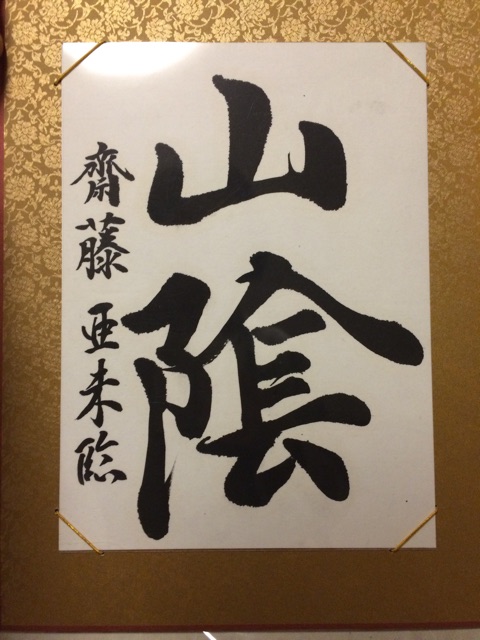 山陰
齋藤亜未臨